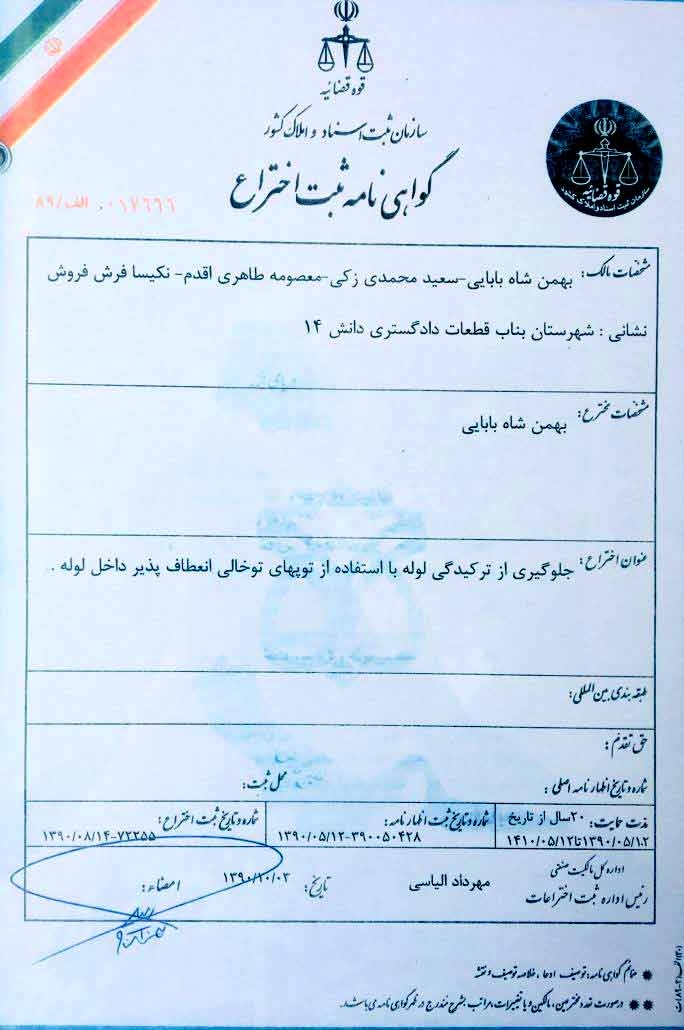 قوه قضائیه
سازمان ثبت اسناد و املاک کشور
گواهی نامه ثبت اختراع
۰۱۷۶۶۶ . الف/۸۹
قوه قضائیه
سازمان ثبت اسناد و املاک کشور
مشخصات مالک: بهمن شاه بابایی-سعید محمدی زکی-معصومه طاهری اقدم- نکیسا فرش فروش
نشانی : شهرستان بناب قطعات دادگستری دانش ۱۴
مشخصات مخترع: بهمن شاه بابایی
عنوان اختراع: جلوگیری از ترکیدگی لوله با استفاده از توپهای توخالی انعطاف پذیر داخل لوله .
طبقه بندی بین المللی:
حق تقدم :
شماره و تاریخ اظهارنامه اصلی : محل ثبت:
مدت حمایت: ۲۰سال از تاریخ
۱۳۹۰/۰۵/۱۲تا۱۴۱۰/۰۵/۱۲
شماره و تاریخ ثبت اظهارنامه:
۱۳۹۰/۰۵/۱۲-۳۹۰۰۵۰۴۲۸
شماره و تاریخ ثبت اختراع:
۱۳۹۰/۰۸/۱۴-۷۲۲۵۵
اداره کل مالکیت صنعتی
رئیس اداره ثبت اختراعات
مهرداد الیاسی
تاریخ: ۱۳۹۰/۱۰/۰۳
امضاء:
** ضمائم گواهی نامه: توصیف ، ادعا ، خلاصه توصیف و نقشه
** درصورت تعدد مخترعین، مالکین و یا تغییرات، مراتب بشرح مندرج در ظهر گواهی نامه می باشد.